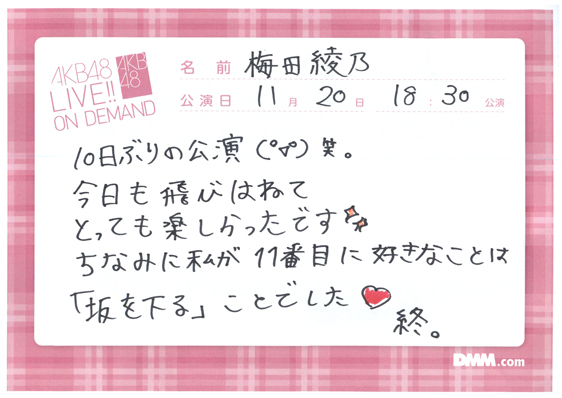 AKB48
LIVE!!
ON DEMAND
AKB
48
名前 梅田綾乃
公演日 11月 20日 18:30公演
10日ぶりの公演(°∀°)笑。
今日も飛びはねて
とっても楽しかったです
ちなみに私が11番目に好きなことは
「坂を下る」ことでした
終。
DMM.com